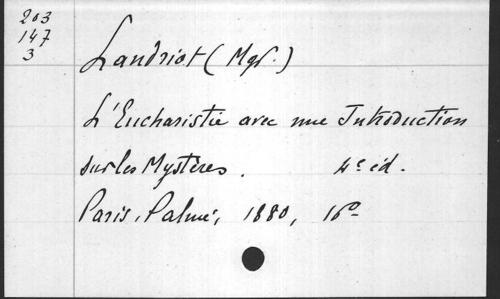 203
147
3
Landriot (Mgr.)
L'Eucharistie avec une Introduction
sur les Mystères. 4e éd.
Paris, Palmé, 1880, 16o